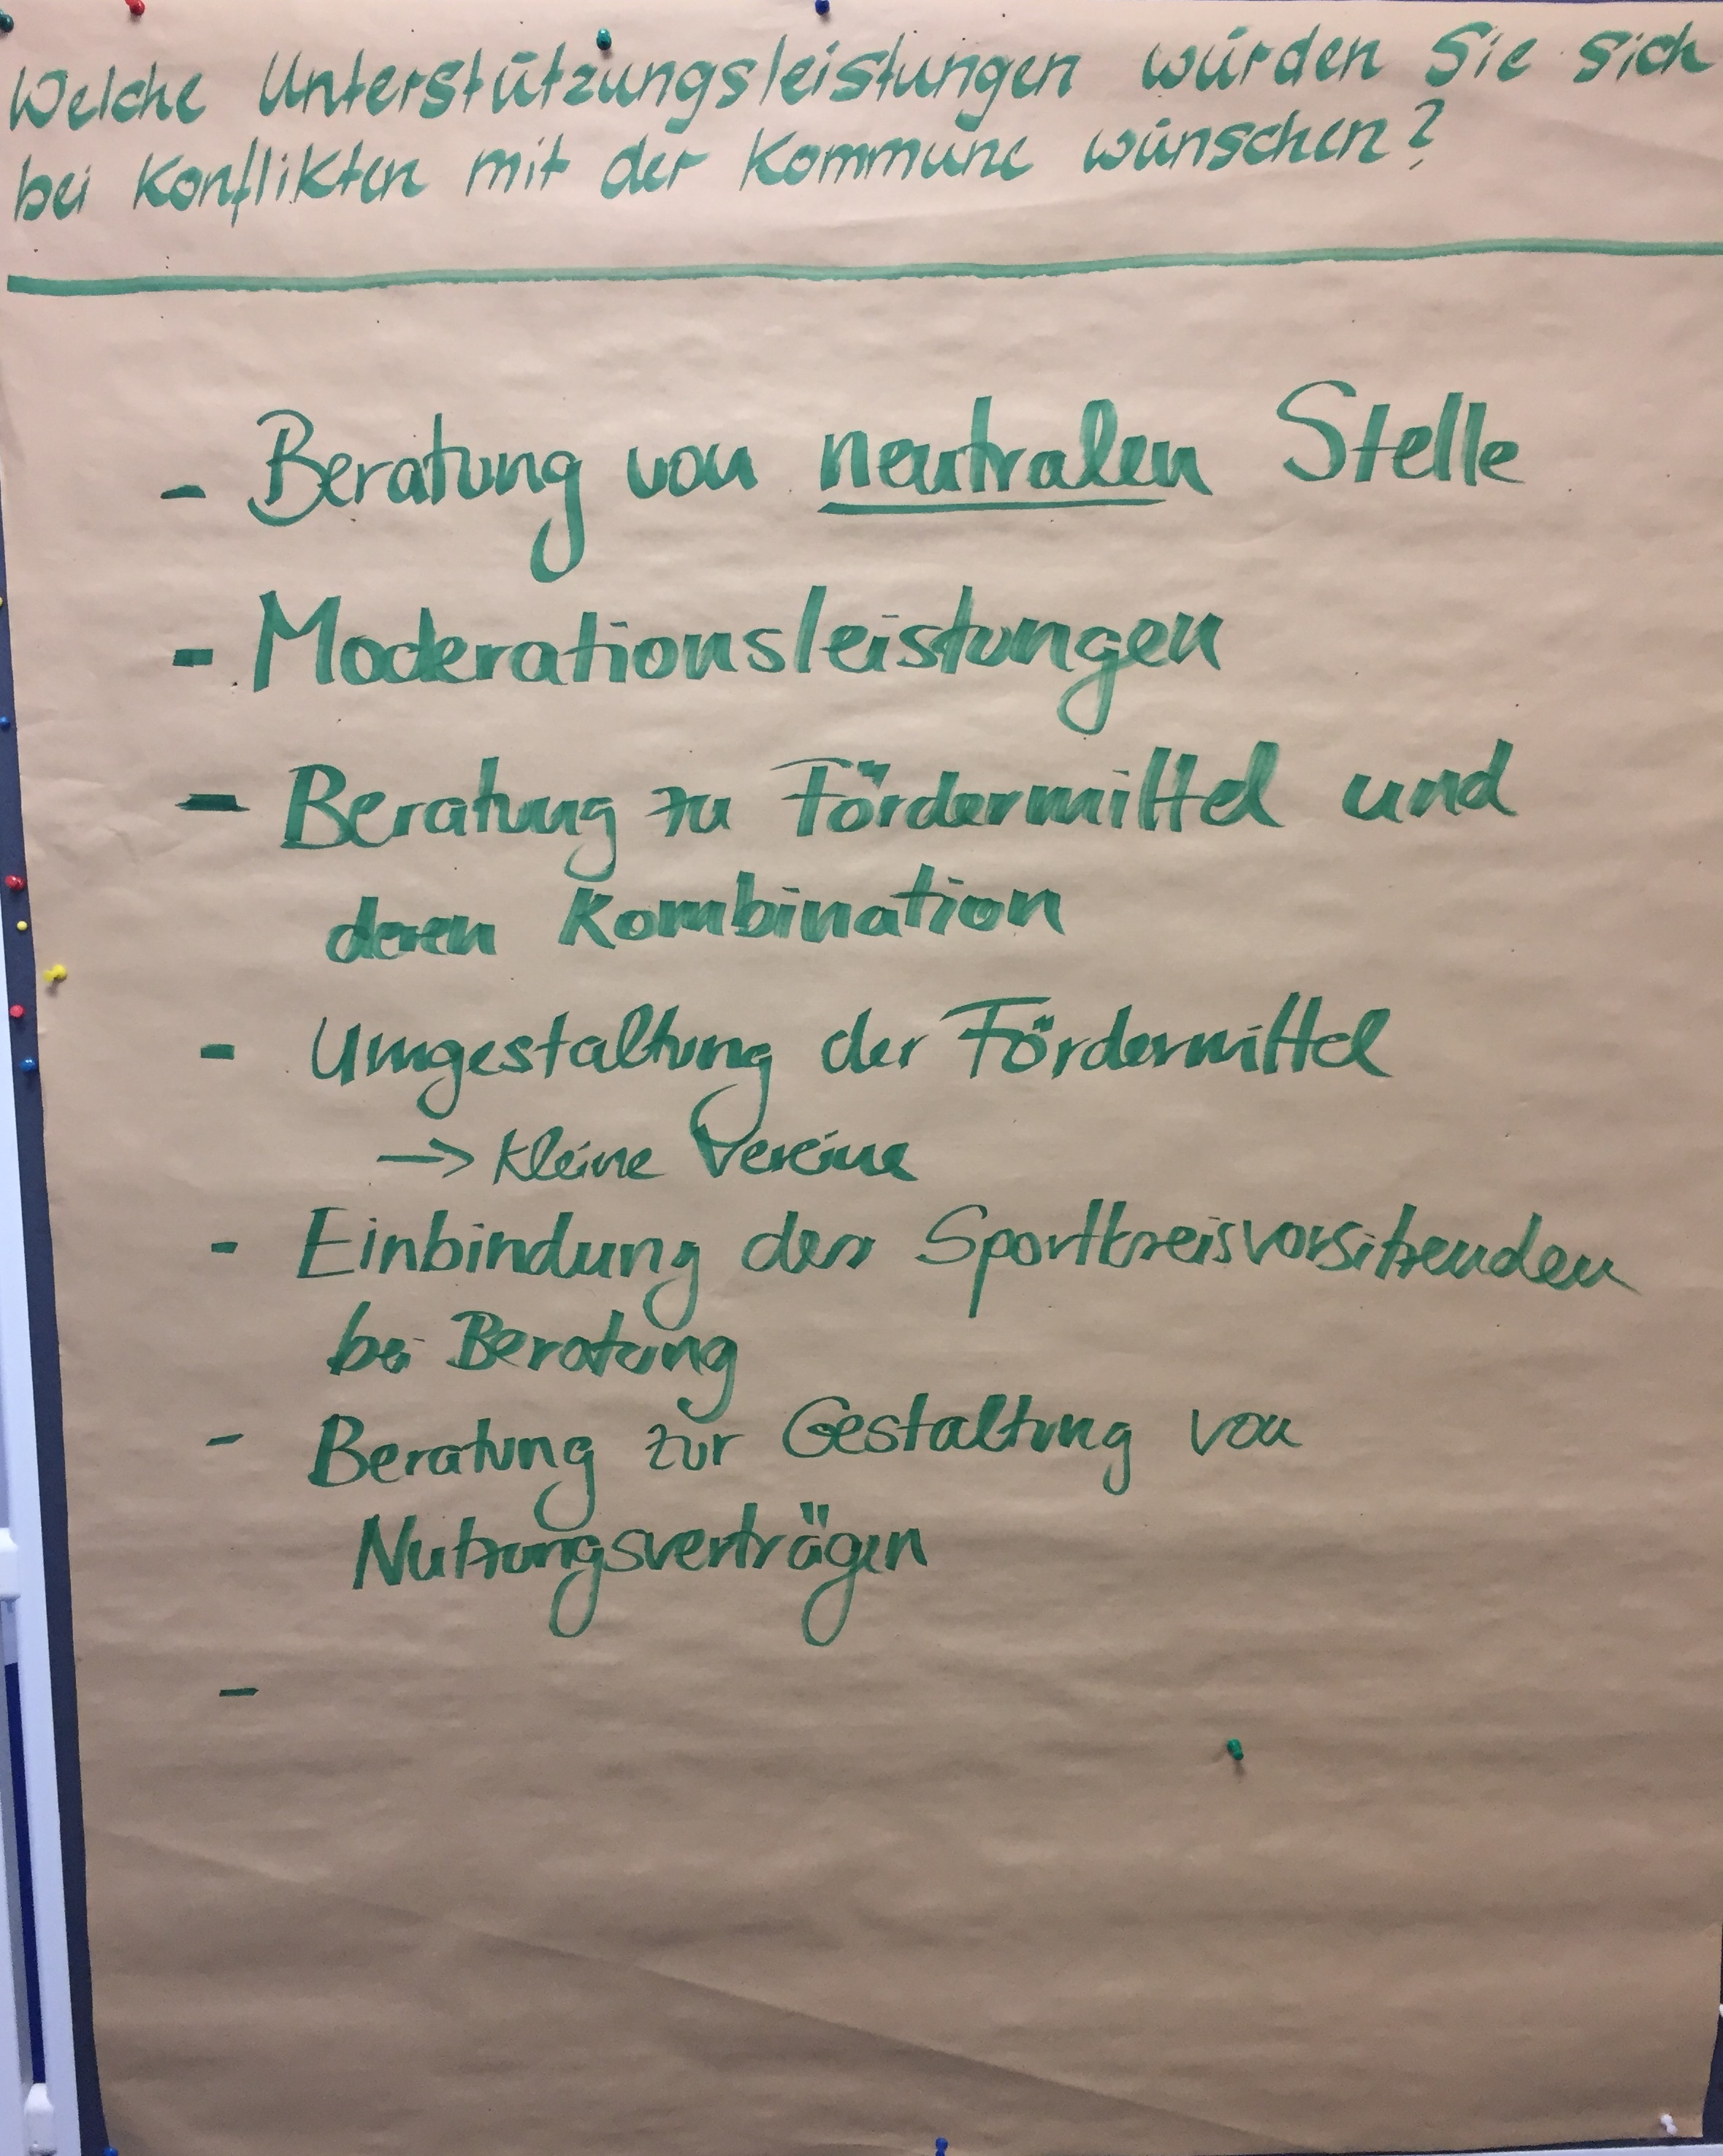 Welche Unterstützungsleistungen würden Sie sich
bei Konflikten mit der Kommune wünschen?
- Beratung von neutralen Stelle
- Moderationsleistungen
- Beratung zu Fördermittel und
deren Kombination
- Umgestaltung der Fördermittel
-> Kleine Vereine
- Einbindung der Sportkreisvorsitzenden
bei Beratung
- Beratung zur Gestaltung von
Nutzungsverträgen
-